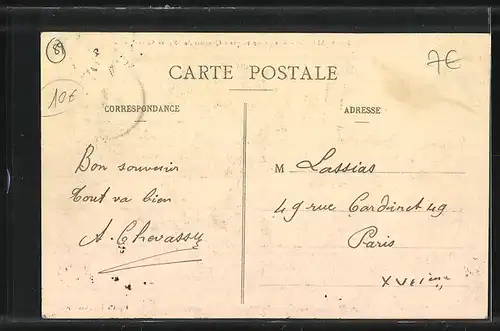 89
7€
10€
CARTE POSTALE
CORRESPONDANCE
ADRESSE
Bon souvenir
tout va bien
A. Chevassu
M Lassias
49 rue Cardinet 49
Paris
XVIIième